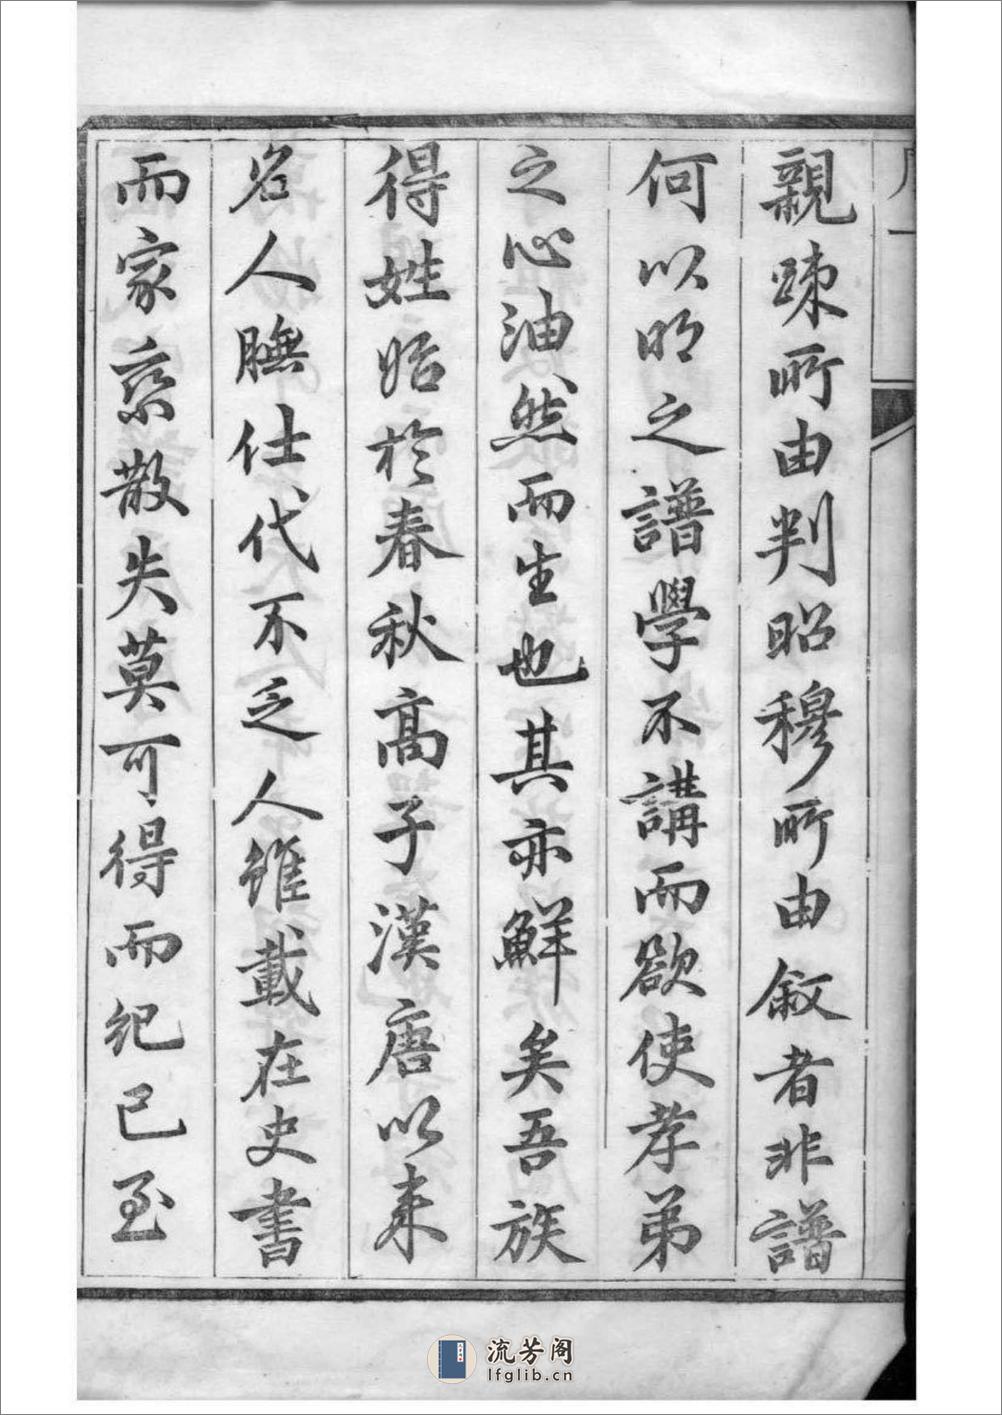 親疎所由判昭穆所由叙者非譜
何以明之譜學不講而欲使孝弟
之心油然而生也其亦鮮矣吾族
得姓始於春秋高子漢唐以来
名人膴仕代不乏人雖載在史書
而家乘散失莫可得而紀已至
流芳阁
lfglib.cn